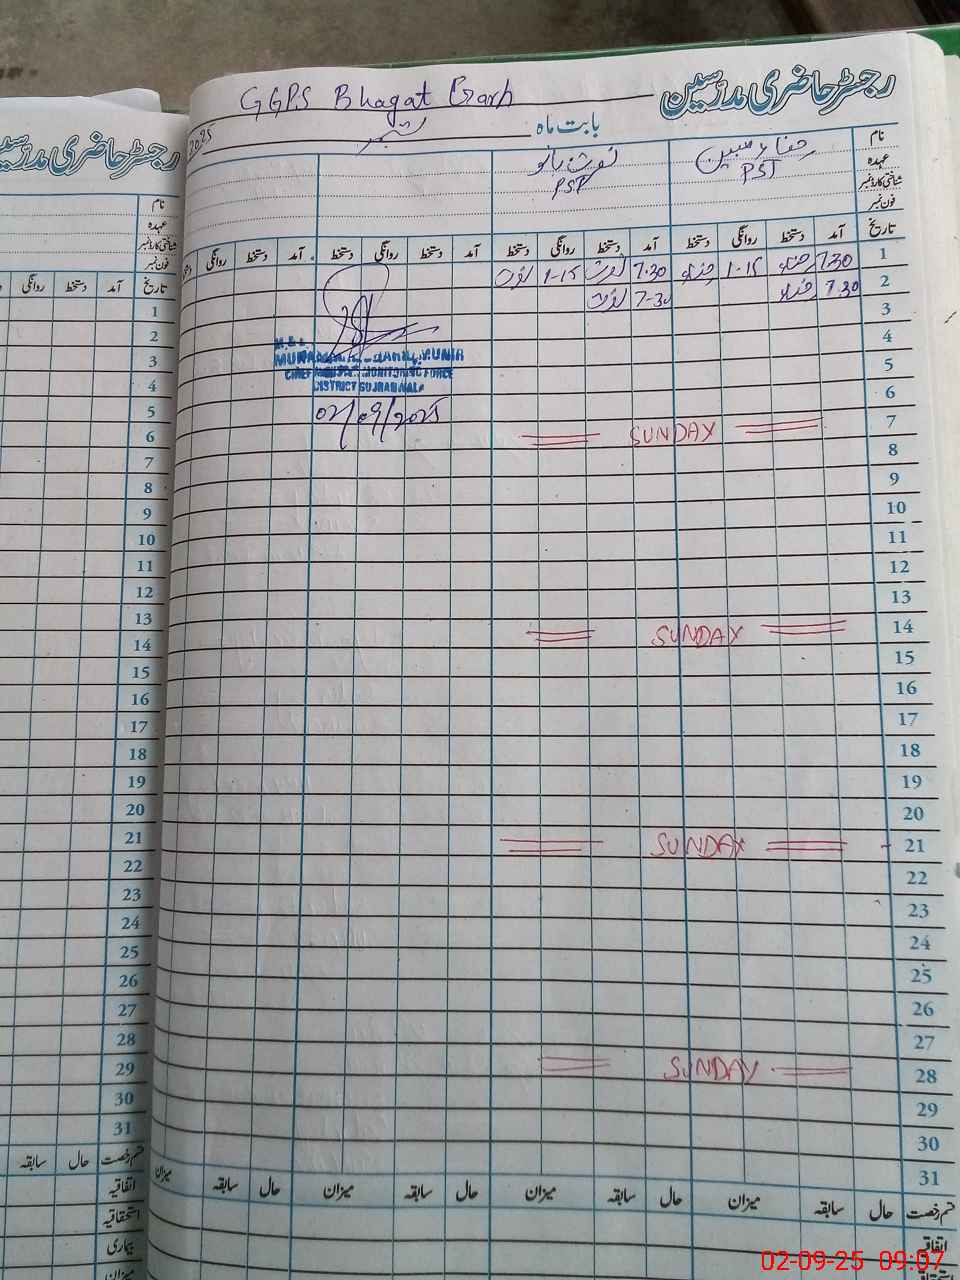 رجسٹر حاضری مدرسین
GGPS Bhagat Garh
بابت ماہ ستمبر 2025
نام
عہدہ PST PST
شناختی کارڈ نمبر
فون نمبر
تاریخ آمد دستخط روانگی دستخط آمد دستخط روانگی دستخط آمد روانگی دستخط آمد دستخط روانگی
1 7.30 1-15 7.30 1-15
2 7.30 7-30
3
4
5
6
7 SUNDAY
8
9
10
11
12
13
14 SUNDAY
15
16
17
18
19
20
21 SUNDAY
22
23
24
25
26
27
28 SUNDAY
29
30
31
قسم رخصت حال سابقہ میزان حال سابقہ میزان حال سابقہ میزان حال سابقہ میزان
اتفاقیہ
CHIEF MONITORING FORCE
DISTRICT GUJRANWALA
02/09/2025
رجسٹر حاضری مدرسین
نام
عہدہ
شناختی کارڈ نمبر
فون نمبر
تاریخ آمد دستخط روانگی
1
2
3
4
5
6
7
8
9
10
11
12
13
14
15
16
17
18
19
20
21
22
23
24
25
26
27
28
29
30
31
قسم رخصت حال سابقہ
اتفاقیہ
استحقاقیہ
بیماری
میزان
02-09-25 09:07